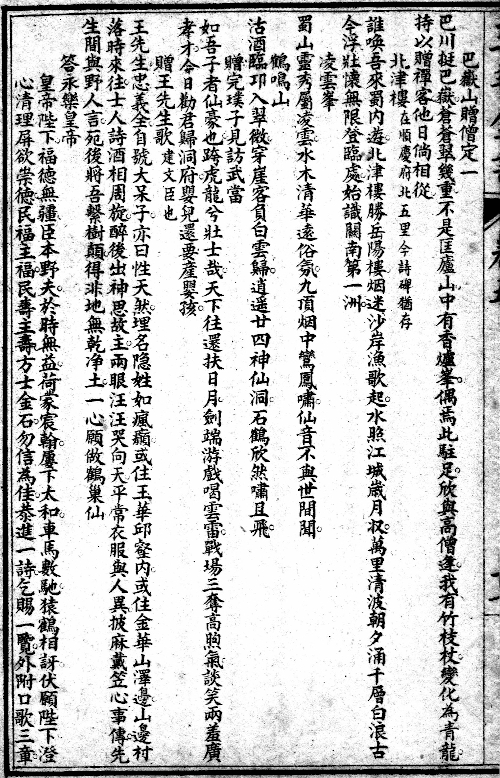 巴嶽山贈僧定一
巴川挺巴嶽倉蒼翠幾重不是匡廬山中有香爐峯偶焉此駐足欣與高僧逢我有竹枝杖變化為青龍
持以贈禪客他日倘相從
北津樓在順慶府北五里今詩碑猶存
誰喚吾來蜀內遊北津樓勝岳陽樓烟迷沙岸漁歌起水照江城歲月収萬里清波朝夕涌千層白浪古
今浮壯懷無限登臨處始識關南第一洲
凌雲峯
蜀山靈秀屬凌雲水木清華遠俗氛九頂烟中鸞鳳嘯仙音不與世間聞
鶴鳴山
沽酒臨邛入翠微穿崖客負白雲歸逍遥廿四神仙洞石鶴欣然嘯且飛
贈完璞子見訪武當
如吾子者仙豪也跨虎龍兮壯士哉天下往還扶日月劍端游戲喝雲雷戰場三奪高煦氣談笑兩羞廣
孝才今日勸君歸洞府嬰兒還要産嬰孩
贈王先生歌建文臣也
王先生忠義全自號大呆子亦曰性天然埋名隐姓如瘋癲或住玉華邱壑內或住金華山澤邊山邊村
落時來往士人詩酒相周旋醉後出神思故主兩眼汪汪哭向天平常衣服與人異披麻戴笠心事傳先
生間與野人言死後將吾繫樹顛得非地無乾净土一心願做鶴巢仙
答永樂皇帝
皇帝陛下福德無疆臣本野夫於時無益荷蒙宸翰屢下太和車馬數馳猿鶴相訝伏願陛下澄
心清理屏欲崇德民福主福民壽主壽方士金石勿信為佳恭進一詩乞賜一覽外附口歌三章